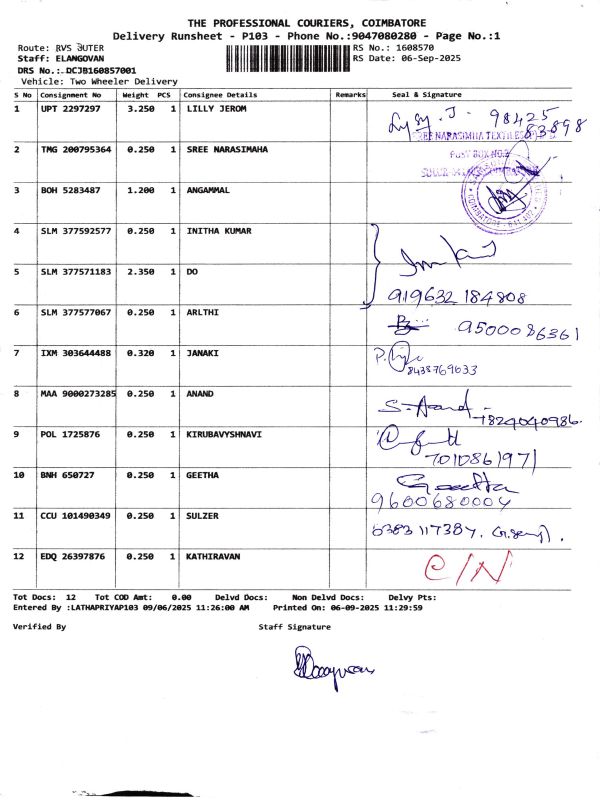 THE PROFESSIONAL COURIERS, COIMBATORE
Delivery Runsheet - P103 - Phone No.:9047080280 - Page No.:1
Route: RVS SUTER RS No.: 1608570
Staff: ELANGOVAN RS Date: 06-Sep-2025
DRS No.: DCJB160857001
Vehicle: Two Wheeler Delivery
S No Consignment No Weight PCS Consignee Details Remarks Seal & Signature
1 UPT 2297297 3.250 1 LILLY JEROM 98425
83898
SREE NARASIMHA TEXTILES
2 TMG 200795364 0.250 1 SREE NARASIMAHA
3 BOH 5283487 1.200 1 ANGAMMAL
4 SLM 377592577 0.250 1 INITHA KUMAR
5 SLM 377571183 2.350 1 DO 919632 184808
6 SLM 377577067 0.250 1 ARLTHI 9500086361
7 IXM 303644488 0.320 1 JANAKI
8438769633
8 MAA 9000273285 0.250 1 ANAND S. Anand
7824040986.
9 POL 1725876 0.250 1 KIRUBAVYSHNAVI
7010861971
10 BNH 650727 0.250 1 GEETHA Geetha
9600680004
11 CCU 101490349 0.250 1 SULZER 6383 117387.
12 EDQ 26397876 0.250 1 KATHIRAVAN C/N
Tot Docs: 12 Tot COD Amt: 0.00 Delvd Docs: Non Delvd Docs: Delvy Pts:
Entered By :LATHAPRIYAP103 09/06/2025 11:26:00 AM Printed On: 06-09-2025 11:29:59
Verified By Staff Signature